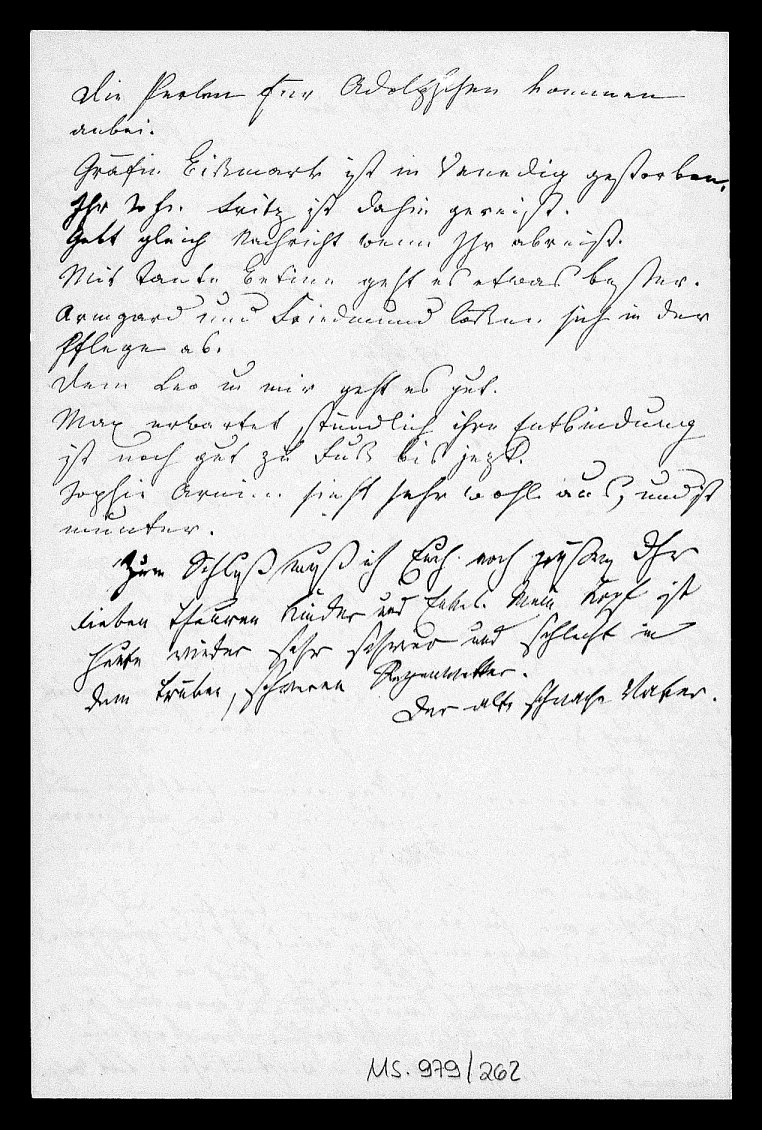 Die Perlen für Adolphchen kommen
anbei.
Gräfin Bismark ist in Venedig gestorben.
Ihr Sohn Fritz ist dahin gereist.
Gebt gleich Nachricht wenn Ihr abreist.
Mit Tante Betine geht es etwas besser.
Armgard und Friedmund lösen sich in der
Pflege ab.
Dem Leo u mir geht es gut.
Max erwartet stündlich ihre Entbindung
ist noch gut zu Fuß bis jezt.
Sophie Arnim sieht sehr wohl aus, und ist
munter.
Zum Schluß muß ich Euch noch grüßen Ihr
lieben theuren Kinder und Enkel. Mein Kopf ist
heute wieder sehr schwer und schlecht in
dem trüben, schweren Regenwetter.
Der alte schwache Vater.
MS. 979/262